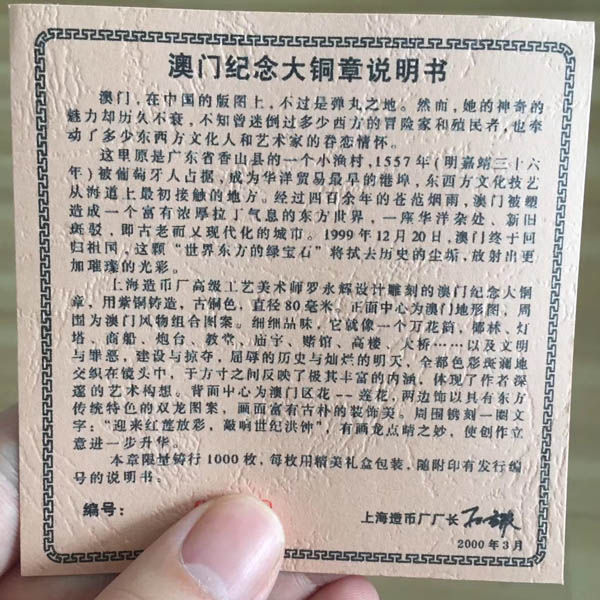 澳门纪念大铜章说明书
澳门，在中国的版图上，不过是弹丸之地。然而，她的神奇的
魅力却历久不衰，不知曾迷倒过多少西方的冒险家和殖民者，也牵
动了多少东西方文化人和艺术家的眷恋情怀。
这里原是广东省香山县的一个小渔村，1557年（明嘉靖三十六
年）被葡萄牙人占据，成为华洋贸易最早的港埠，东西方文化技艺
从海道上最初接触的地方。经过四百余年的苍茫烟雨，澳门被塑
造成一个富有浓厚拉丁气息的东方世界，一座华洋杂处、新旧
斑驳，即古老而又现代化的城市。1999年12月20日，澳门终于回
归祖国，这颗“世界东方的绿宝石”将拭去历史的尘垢，放射出更
加璀璨的光彩。
上海造币厂高级工艺美术师罗永辉设计雕刻的澳门纪念大铜
章，用紫铜铸造，古铜色，直径80毫米。正面中心为澳门地形图，周
围为澳门风物组合图案。细细品味，它就像一个万花筒，椰林、灯
塔、商船、炮台、教堂、庙宇、赌馆、高楼、大桥……以及文明
与罪恶，建设与掠夺，屈辱的历史与灿烂的明天，全都色彩斑斓地
交织在镜头中，于方寸之间反映了极其丰富的内涵，体现了作者深
邃的艺术构想。背面中心为澳门区花--莲花，两边饰以具有东方
传统特色的双龙图案，画面富有古朴的装饰美。周围镌刻一圈文
字：“迎来红莲放彩，敲响世纪洪钟”，有画龙点睛之妙，使创作立
意进一步升华。
本章限量铸行1000枚，每枚用精美礼盒包装，随附印有发行编
号的说明书。
编号：
上海造币厂厂长
2000年3月